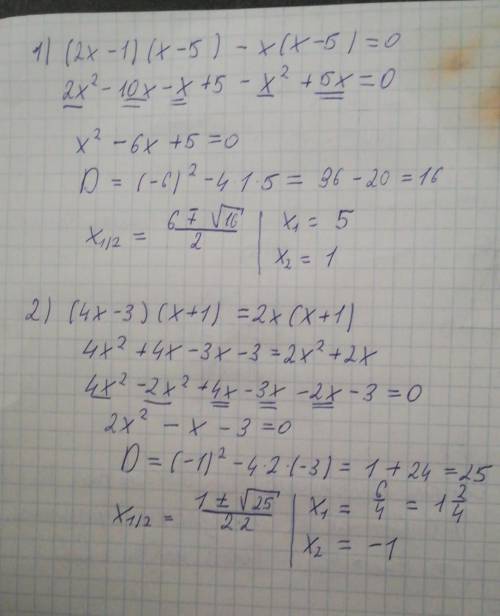 1) (2x-1)(x-5) - x(x-5) = 0
2x² - 10x - x + 5 - x² + 5x = 0
x² - 6x + 5 = 0
D = (-6)² - 4·1·5 = 36 - 20 = 16
x₁/₂ = (6 ∓ √16)/2 | x₁ = 5
x₂ = 1
2) (4x-3)(x+1) = 2x(x+1)
4x² + 4x - 3x - 3 = 2x² + 2x
4x² - 2x² + 4x - 3x - 2x - 3 = 0
2x² - x - 3 = 0
D = (-1)² - 4·2·(-3) = 1 + 24 = 25
x₁/₂ = (1 ± √25)/(2·2) | x₁ = 6/4 = 1 2/4
x₂ = -1